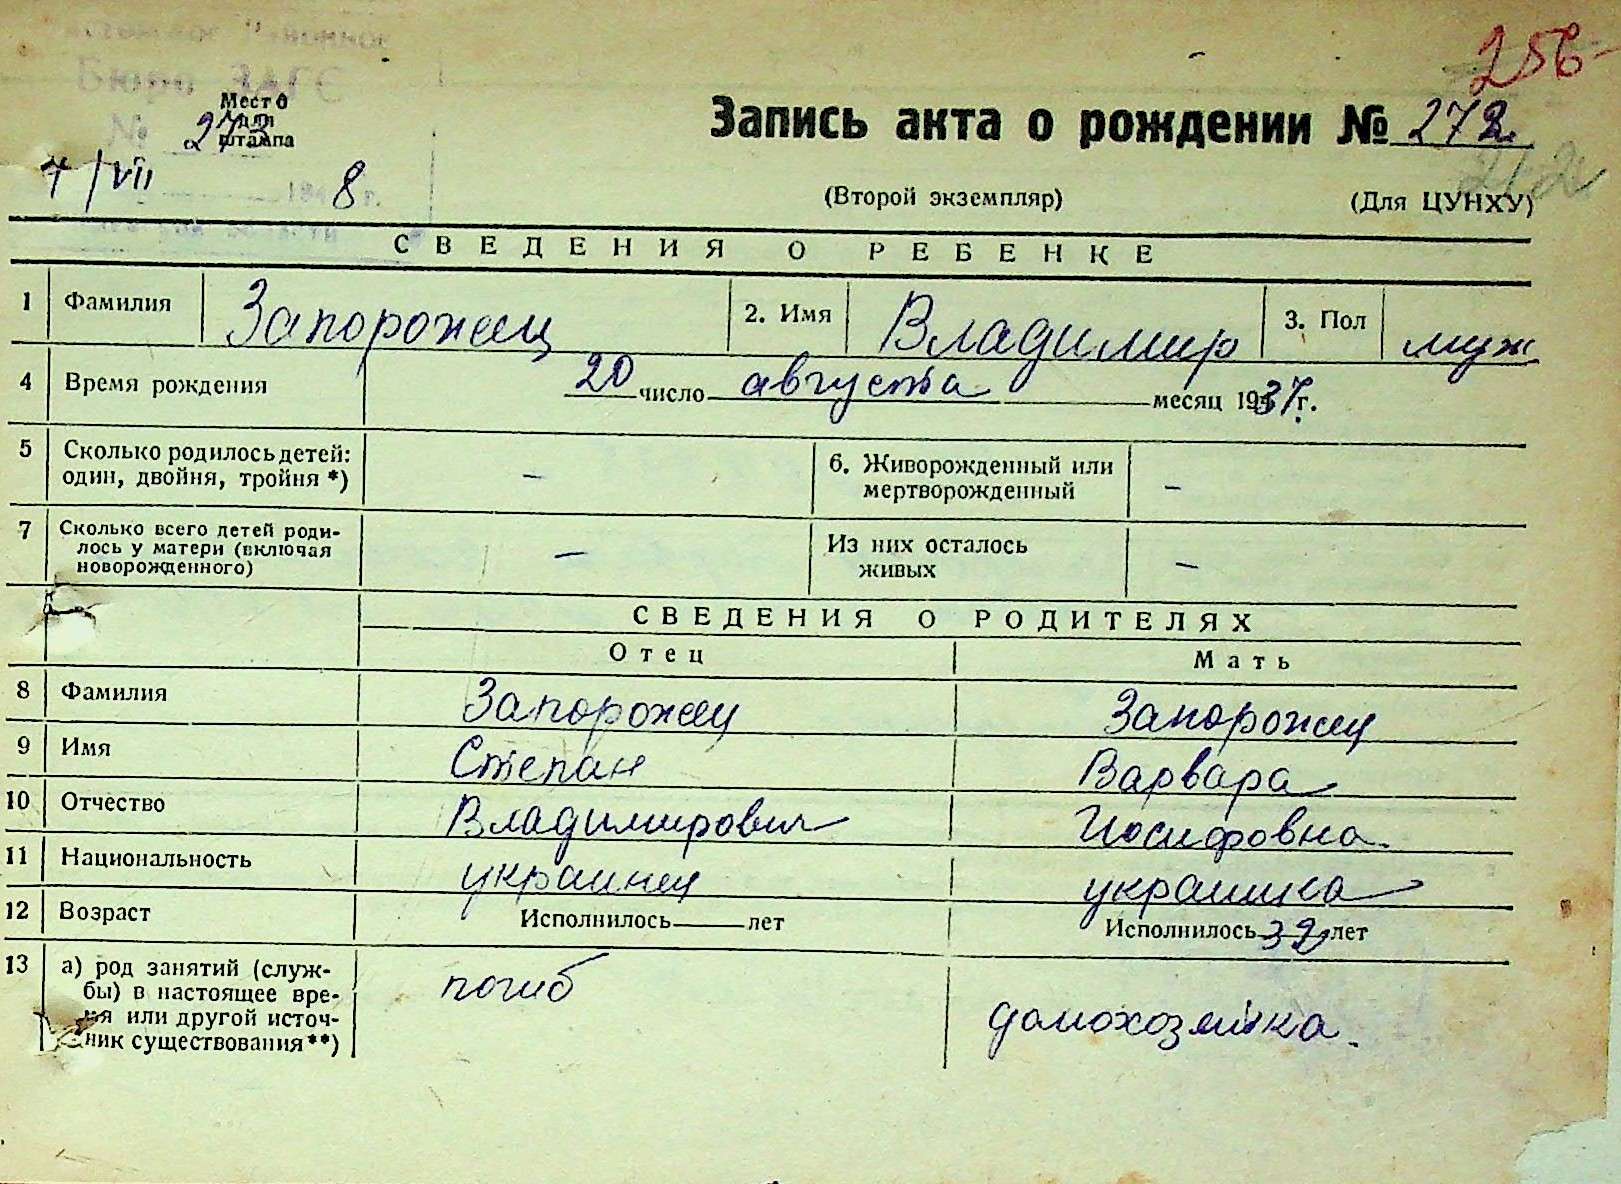 Районное
Бюро ЗАГС
256
Место
для
штампа
№ 273
Запись акта о рождении № 272
7/VII 1948 г.
(Второй экземпляр)
(Для ЦУНХУ)
области
СВЕДЕНИЯ О РЕБЕНКЕ
1 Фамилия Запорожец 2. Имя Владимир 3. Пол муж
4 Время рождения 20 число августа месяц 1937 г.
5 Сколько родилось детей: один, двойня, тройня *) – 6. Живорожденный или мертворожденный –
7 Сколько всего детей родилось у матери (включая новорожденного) – Из них осталось живых –
СВЕДЕНИЯ О РОДИТЕЛЯХ
Отец Мать
8 Фамилия Запорожец Запорожец
9 Имя Степан Варвара
10 Отчество Владимирович Иосифовна.
11 Национальность украинец украинка
12 Возраст Исполнилось — лет Исполнилось 39 лет
13 а) род занятий (службы) в настоящее время или другой источник существования **) погиб домохозяйка.